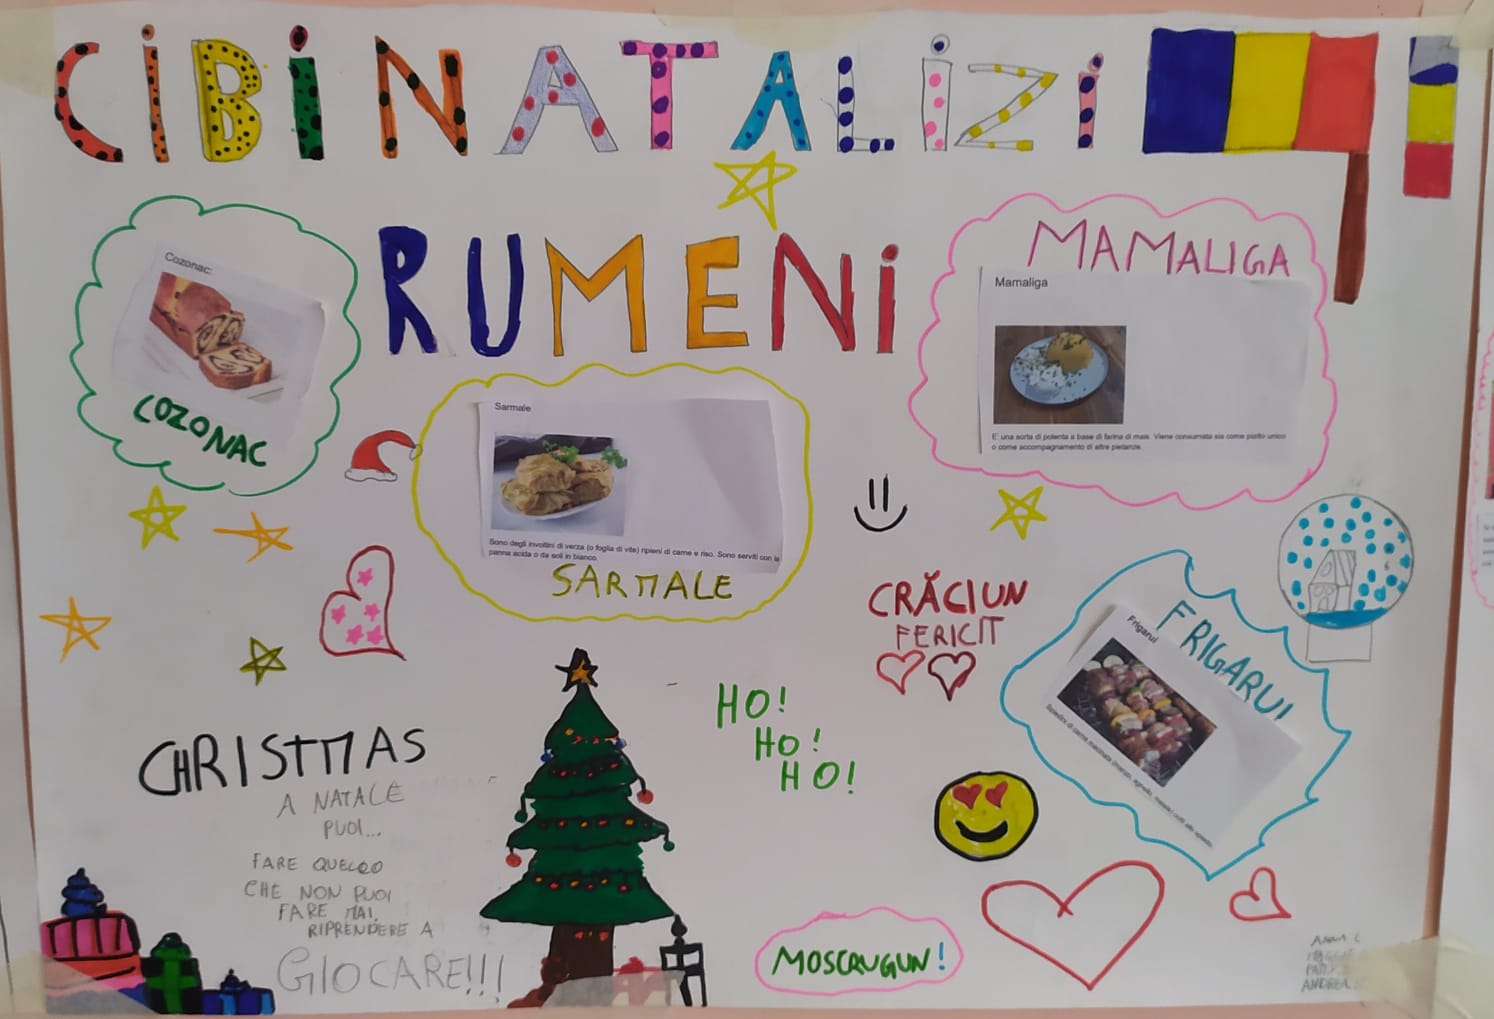 CIBI NATALIZI
RUMENI
Cozonac:
COZONAC
MAMALIGA
Mamaliga
E' una sorta di polenta a base di farina di mais. Viene consumata sia come piatto unico
o come accompagnamento di altre pietanze.
Sarmale
Sono degli involtini di verza (o foglia di vite) ripieni di carne e riso. Sono serviti con la
panna acida o da soli in bianco.
SARMALE
CRĂCIUN
FERICIT
FRIGARUI
Frigarui
Spiedini di carne macinata (manzo, agnello, maiale) cotti allo spiedo.
HO!
HO!
HO!
CHRISTMAS
A NATALE
PUOI...
FARE QUELLO
CHE NON PUOI
FARE MAI,
RIPRENDERE A
GIOCARE!!!
MOSCRUGUN!
ANNA C
ANDREA